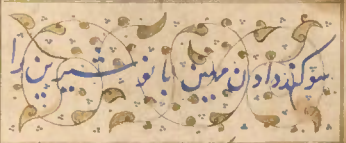 سوگند دادن مهین بانو شیرین را